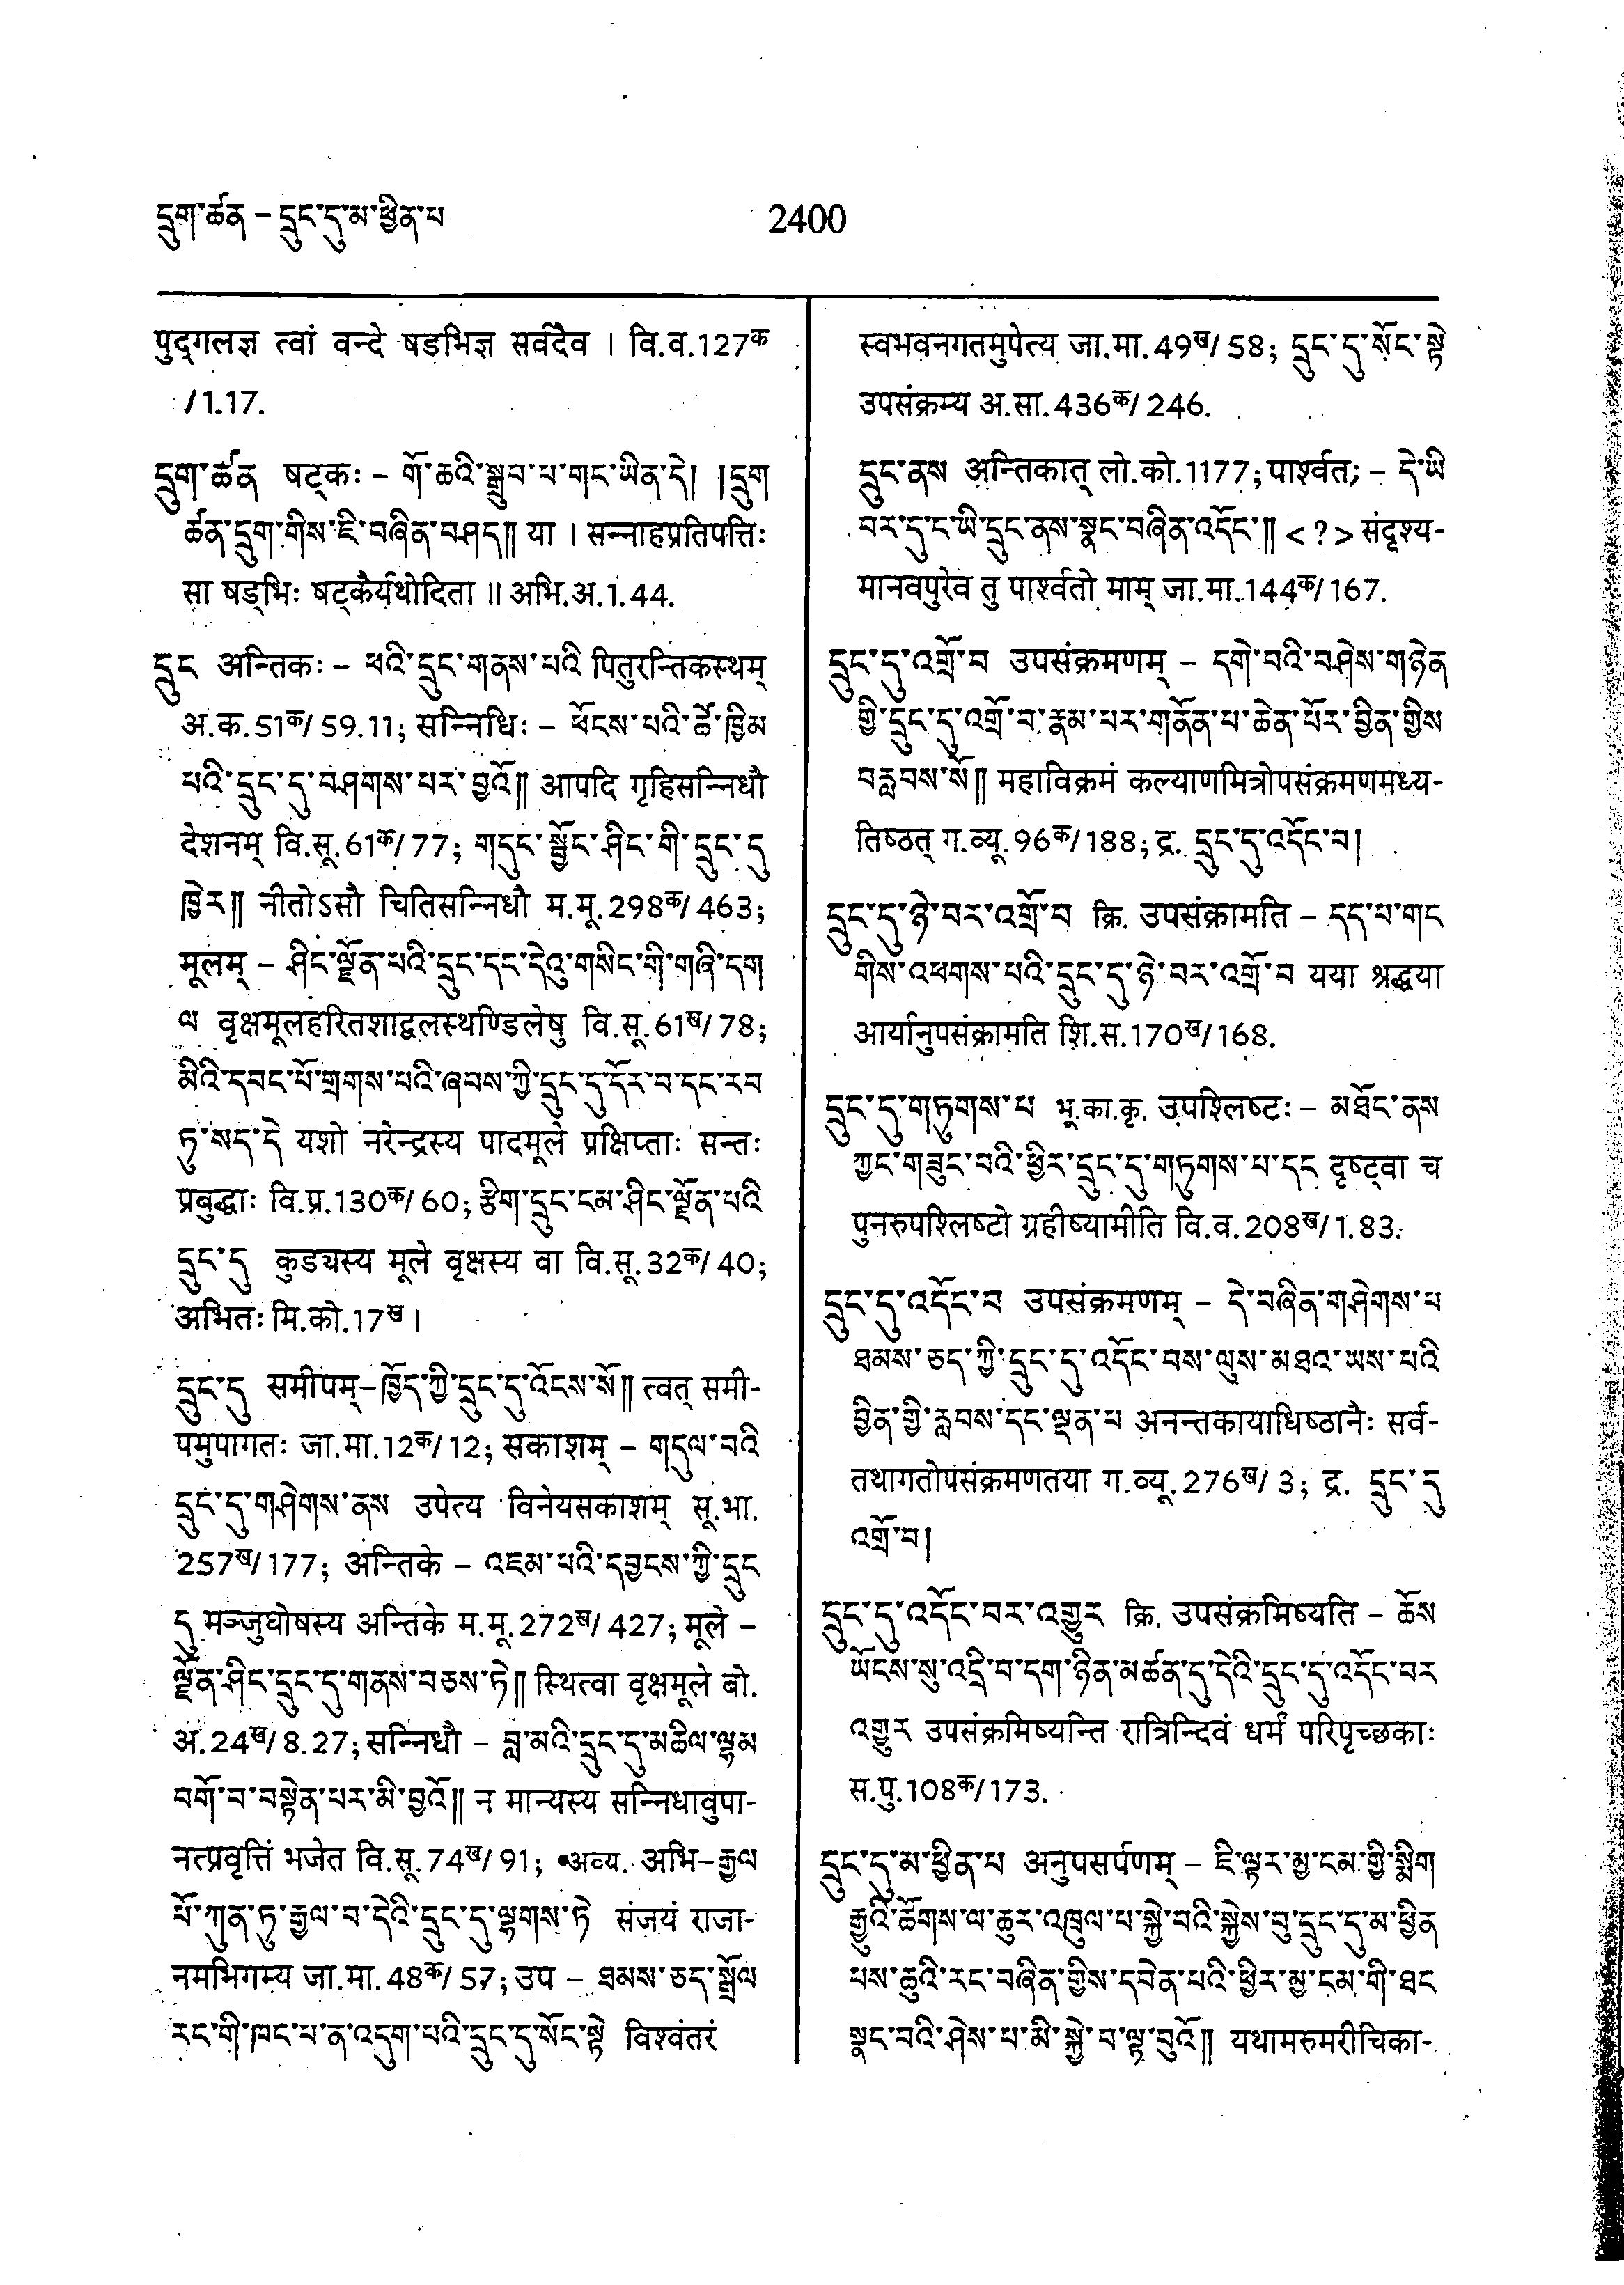 དྲུག་ཚན – དྲུང་དུ་མ་ཕྱིན་པ
2400
पुद्गलज्ञ त्वां वन्दे षडभिज्ञ सर्वदैव । वि.व.127क
/1.17.
དྲུག་ཚན षट्कः – གོ་ཆའི་སྒྲུབ་པ་གང་ཡིན་དེ། །དྲུག
ཚན་དྲུག་གིས་ཇི་བཞིན་བཤད༎ या । सन्नाहप्रतिपत्तिः
सा षड्भिः षट्कैर्यथोदिता ॥ अभि.अ.1.44.
དྲུང अन्तिकः – ཕའི་དྲུང་གནས་པའི पितुरन्तिकस्थम्
अ.क.51क/59.11; सन्निधिः – ཕོངས་པའི་ཚེ་ཁྱིམ
པའི་དྲུང་དུ་བཤགས་པར་བྱའོ༎ आपदि गृहिसन्निधौ
देशनम् वि.सू.61क/77; གདུང་སྦྱོང་ཤིང་གི་དྲུང་དུ
ཁྱེར༎ नीतोऽसौ चितिसन्निधौ म.मू.298क/463;
मूलम् – ཤིང་ལྗོན་པའི་དྲུང་དང་དེའུ་གསིང་གི་གཞི་དག
ལ वृक्षमूलहरितशाद्वलस्थण्डिलेषु वि.सू.61ख/78;
མིའི་དབང་པོ་གྲགས་པའི་ཞབས་ཀྱི་དྲུང་དུ་དོར་བ་དང་རབ
ཏུ་སད་དེ यशो नरेन्द्रस्य पादमूले प्रक्षिप्ताः सन्तः
प्रबुद्धाः वि.प्र.130क/60; རྩིག་དྲུང་ངམ་ཤིང་ལྗོན་པའི
དྲུང་དུ कुड्यस्य मूले वृक्षस्य वा वि.सू.32क/40;
अभितः मि.को.17ख ।
དྲུང་དུ समीपम्–ཁྱོད་ཀྱི་དྲུང་དུ་འོངས་སོ༎ त्वत् समी-
पमुपागतः जा.मा.12क/12; सकाशम् – གདུལ་བའི
དྲུང་དུ་གཤེགས་ནས उपेत्य विनेयसकाशम् सू.भा.
257ख/177; अन्तिके – འཇམ་པའི་དབྱངས་ཀྱི་དྲུང
དུ मञ्जुघोषस्य अन्तिके म.मू.272ख/427; मूले –
ལྗོན་ཤིང་དྲུང་དུ་གནས་བཅས་ཏེ༎ स्थित्वा वृक्षमूले बो.
अ.24ख/8.27; सन्निधौ – བླ་མའི་དྲུང་དུ་མཆིལ་ལྷམ
བགོ་བ་བསྟེན་པར་མི་བྱའོ༎ न मान्यस्य सन्निधावुपा-
नत्प्रवृत्तिं भजेत वि.सू.74ख/91; •अव्य. अभि–རྒྱལ
པོ་ཀུན་ཏུ་རྒྱལ་བ་དེའི་དྲུང་དུ་ལྷགས་ཏེ संजयं राजा-
नमभिगम्य जा.मा.48क/57; उप – ཐམས་ཅད་སྒྲོལ
རང་གི་ཁང་པ་ན་འདུག་པའི་དྲུང་དུ་སོང་སྟེ विश्वंतरं
स्वभवनगतमुपेत्य जा.मा.49ख/58; དྲུང་དུ་སོང་སྟེ
उपसंक्रम्य अ.सा.436क/246.
དྲུང་ནས अन्तिकात् लो.को.1177; पार्श्वत; – དེ་ཡི
བར་དུ་ང་ཡི་དྲུང་ནས་སྣང་བཞིན་འདོང་༎ <?> संदृश्य-
मानवपुरेव तु पार्श्वतो माम् जा.मा.144क/167.
དྲུང་དུ་འགྲོ་བ उपसंक्रमणम् – དགེ་བའི་བཤེས་གཉེན
གྱི་དྲུང་དུ་འགྲོ་བ་རྣམ་པར་གནོན་པ་ཆེན་པོར་བྱིན་གྱིས
བརླབས་སོ༎ महाविक्रमं कल्याणमित्रोपसंक्रमणमध्य-
तिष्ठत् ग.व्यू.96क/188; द्र. དྲུང་དུ་འདོང་བ།
དྲུང་དུ་ཉེ་བར་འགྲོ་བ क्रि. उपसंक्रामति – དད་པ་གང
གིས་འཕགས་པའི་དྲུང་དུ་ཉེ་བར་འགྲོ་བ यया श्रद्धया
आर्यानुपसंक्रामति शि.स.170ख/168.
དྲུང་དུ་གཏུགས་པ भू.का.कृ. उपश्लिष्टः – མཐོང་ནས
ཀྱང་གཟུང་བའི་ཕྱིར་དྲུང་དུ་གཏུགས་པ་དང दृष्ट्वा च
पुनरुपश्लिष्टो ग्रहीष्यामीति वि.व.208ख/1.83.
དྲུང་དུ་འདོང་བ उपसंक्रमणम् – དེ་བཞིན་གཤེགས་པ
ཐམས་ཅད་ཀྱི་དྲུང་དུ་འདོང་བས་ལུས་མཐའ་ཡས་པའི
བྱིན་གྱི་རླབས་དང་ལྡན་པ अनन्तकायाधिष्ठानैः सर्व-
तथागतोपसंक्रमणतया ग.व्यू.276ख/3; द्र. དྲུང་དུ
འགྲོ་བ།
དྲུང་དུ་འདོང་བར་འགྱུར क्रि. उपसंक्रमिष्यति – ཆོས
ཡོངས་སུ་འདྲི་བ་དག་ཉིན་མཚན་དུ་དེའི་དྲུང་དུ་འདོང་བར
འགྱུར उपसंक्रमिष्यन्ति रात्रिन्दिवं धर्मं परिपृच्छकाः
स.पु.108क/173.
དྲུང་དུ་མ་ཕྱིན་པ अनुपसर्पणम् – ཇི་ལྟར་མྱ་ངམ་གྱི་སྨིག
རྒྱུའི་ཚོགས་ལ་ཆུར་འཁྲུལ་པ་སྐྱེ་བའི་སྐྱེས་བུ་དྲུང་དུ་མ་ཕྱིན
པས་ཆུའི་རང་བཞིན་གྱིས་དབེན་པའི་ཕྱིར་མྱ་ངམ་གི་ཐང
སྣང་བའི་ཤེས་པ་མི་སྐྱེ་བ་ལྟ་བུའོ༎ यथामरुमरीचिका-